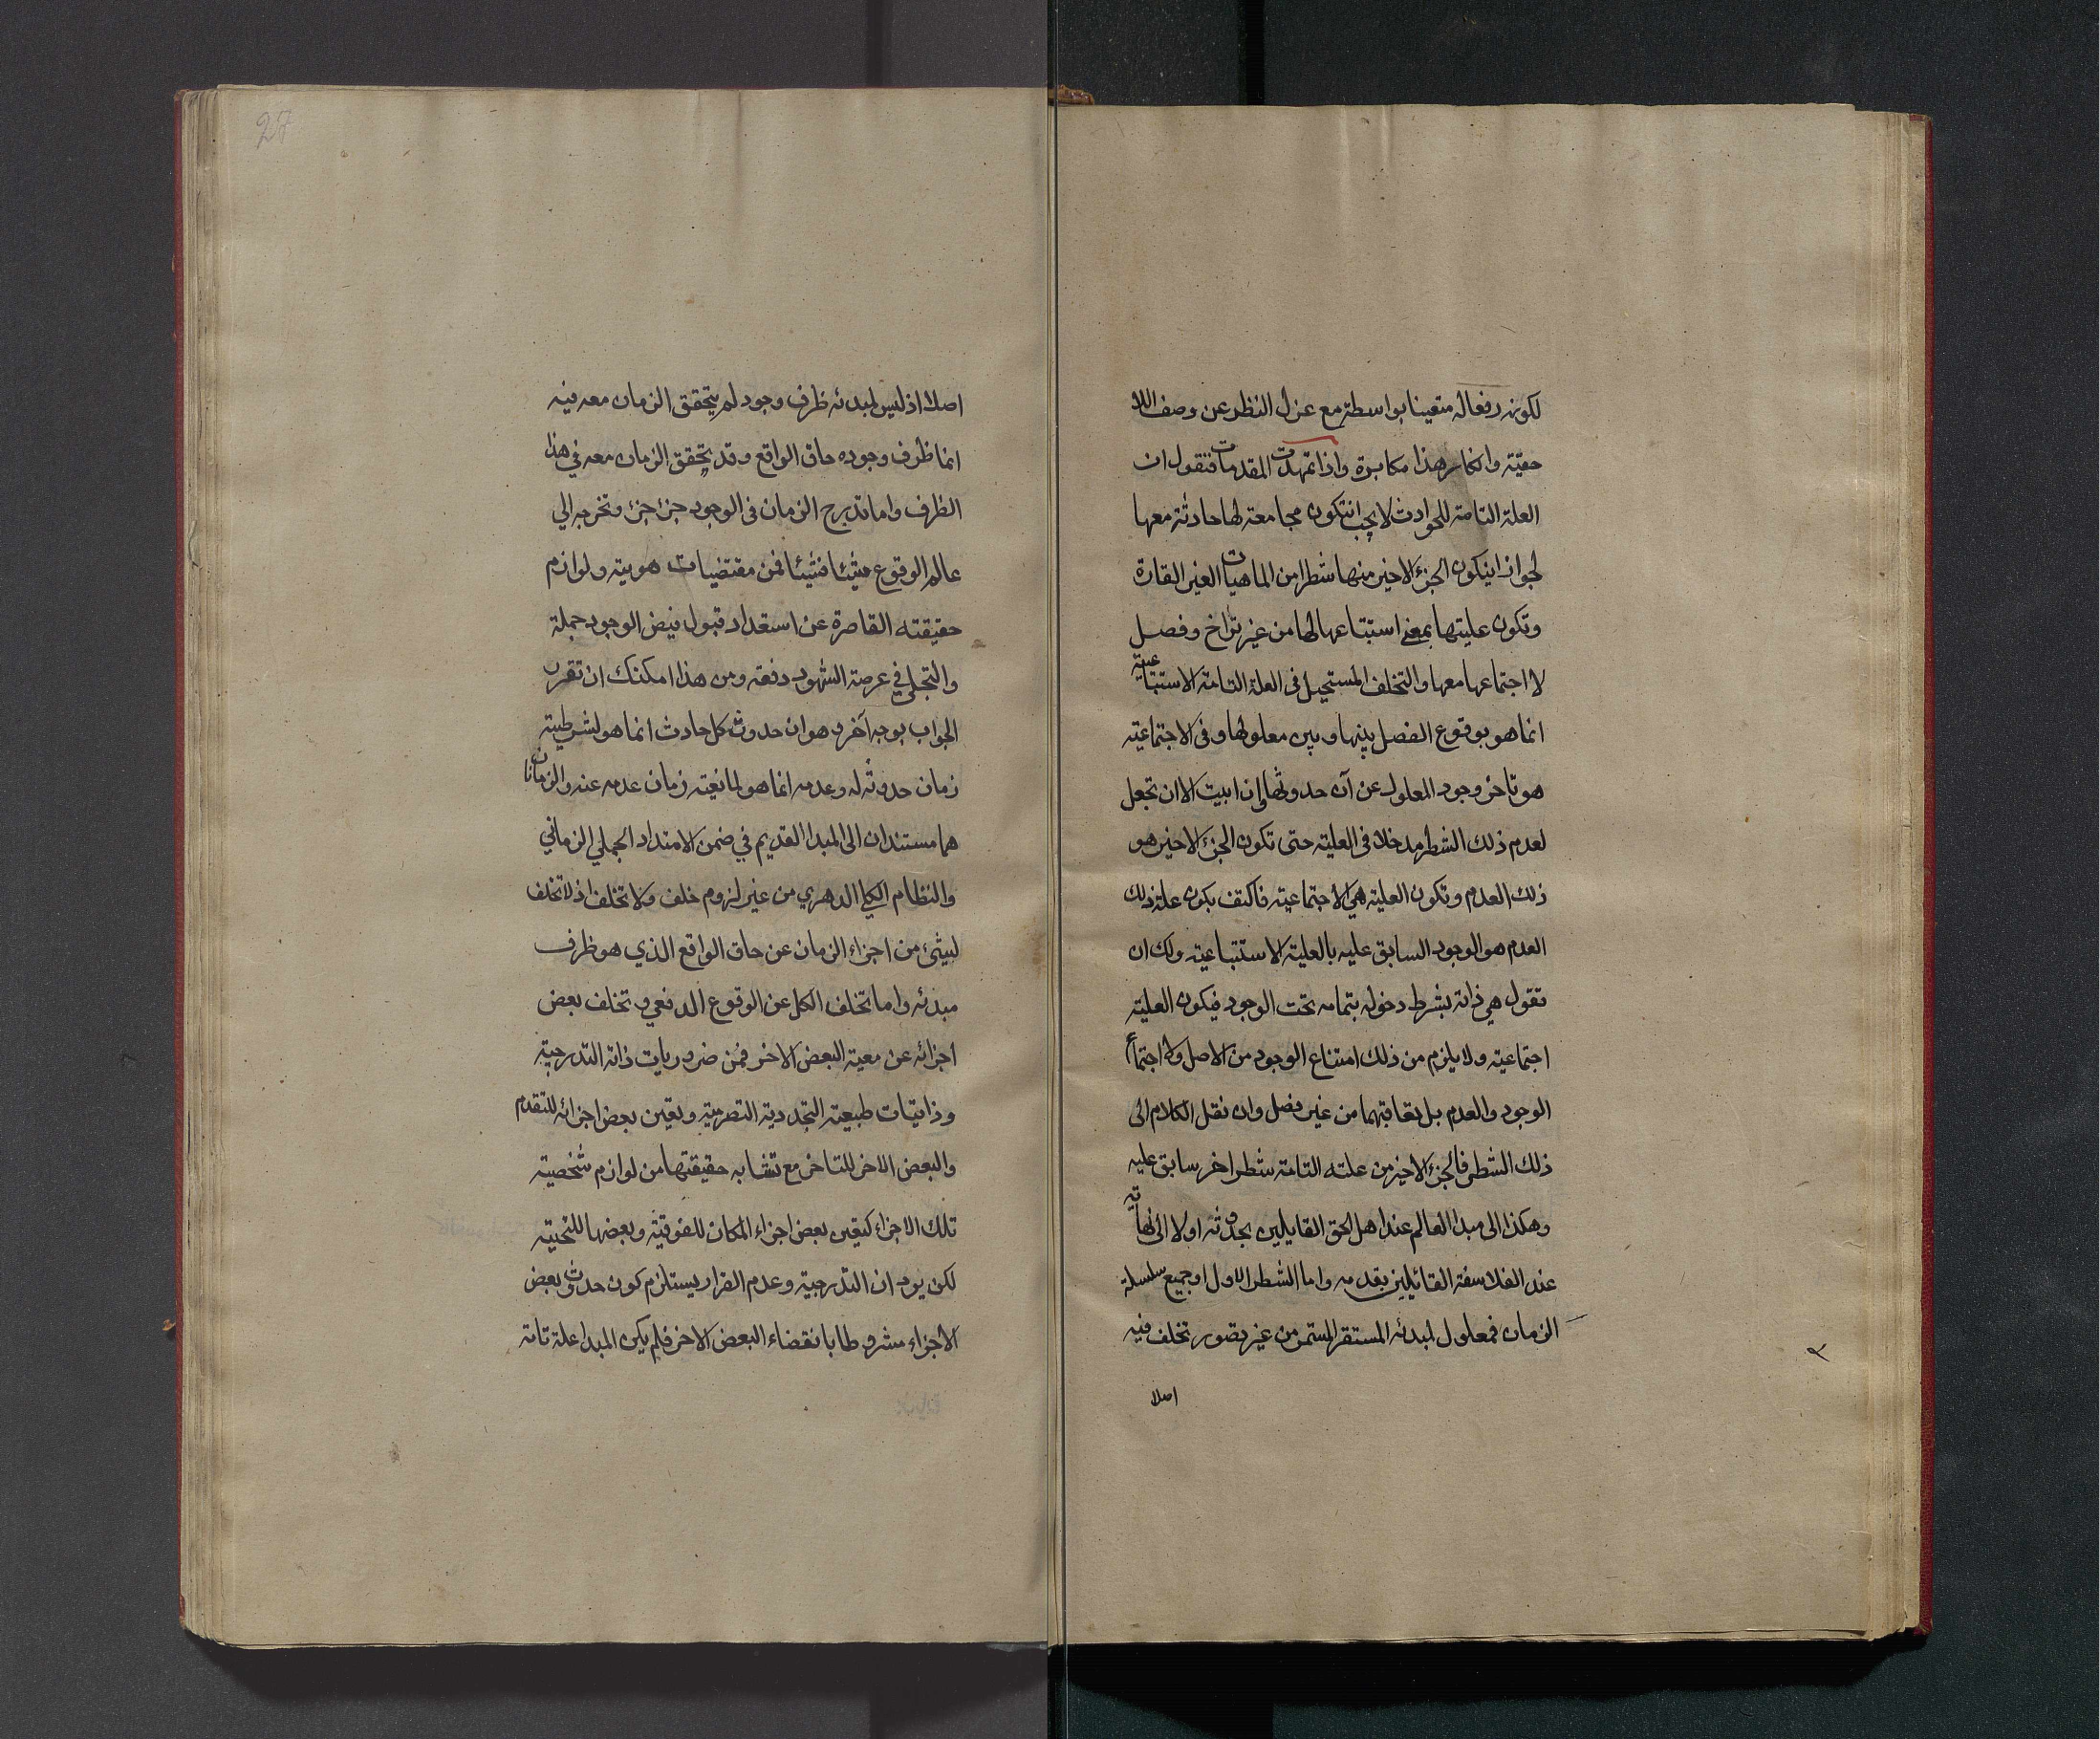 لكونه رفعا له متعينا بواسطته مع عزل النظر عن وصف اللا
حقيّة وانكار هذا مكابرة واذا تمهدت المقدمات فنقول ان
العلة التامة للحوادث لا يجب انتكون مجامعة لها حادثة معها
لجواز اينكون الجزء الاخير منها شطرا من الماهيات الغير القارة
وتكون عليتها بمعنى استتباعها لها من غير تراخ وفصل
لا اجتماعها معها والتخلف المستحيل فى العلة التامة الاستتباعية
انما هو بوقوع الفصل بينها وبين معلولها وفى الاجتماعية
هو تاخر وجود المعلول عن آن حدوثها وان ابيت الا ان تجعل
لعدم ذلك الشطر مدخلا فى العلية حتى تكون الجزء الاخير هو
ذلك العدم وتكون العلية هى الاجتماعية فاكتف بكون علة ذلك
العدم هو الوجود السابق عليه بالعلية الاستتباعية ولك ان
تقول هي ذاته بشرط دخوله بتمامه تحت الوجود فيكون العلية
اجتماعية ولا يلزم من ذلك امتناع الوجود من الاصل ولا اجتماع
الوجود والعدم بل تعاقبهما من غير فصل وان نقل الكلام الى
ذلك الشطر فالجزء الاخير من علته التامة شطر اخر سابق عليه
وهكذا الى مبدا العالم عند اهل الحق القايلين بحدوثه اولا الى نهاية
عند الفلاسفة القائلين بقدمه واما الشطر الاول او جميع سلسلة
الزمان فمعلول لمبدئه المستقر المستمر من غير تصور تخلف فيه
اصلا
27
اصلا اذ ليس لمبدئه ظرف وجود لم يتحقق الزمان معه فيه
انما ظرف وجوده حاق الواقع وقد يتحقق الزمان معه في هذا
الظرف واما تدرج الزمان فى الوجود جزء جزء وتخرجه الي
عالم الوقوع شيئا فشيئا فمن مقتضيات هويته ولوازم
حقيقته القاصرة عن استعداد قبول فيض الوجود جملة
والتجلي في عرصة الشهود دفعة ومن هذا امكنك ان تقرر
الجواب بوجه آخر وهو ان حدوث كل حادث انما هو لشرطية
زمان حدوثه له وعدمه انما هو لمانعية زمان عدمه عنه والزمانان
هما مستندان الى المبدا القديم في ضمن الامتداد الجملي الزماني
والنظام الكلي الدهري من غير لزوم خلف ولا تخلف اذ لا تخلف
لشيء من اجزاء الزمان عن حاق الواقع الذي هو ظرف
مبدئه واما تخلف الكل عن الوقوع الدفعي وتخلف بعض
اجزائه عن معية البعض الاخر فمن ضروريات ذاته التدرجية
وذاتيات طبيعته التجددية التصرمية وتعين بعض اجزائه للتقدم
والبعض الاخر للتاخر مع تشابه حقيقتها من لوازم شخصية
تلك الاجزاء كتعين بعض اجزاء المكان للفوقية وبعضها للتحتية
لكن يرد ان التدرجية وعدم القرار يستلزم كون حدوث بعض
الاجزاء مشروطا بانقضاء البعض الاخر فلم يكن المبدا علة تامة